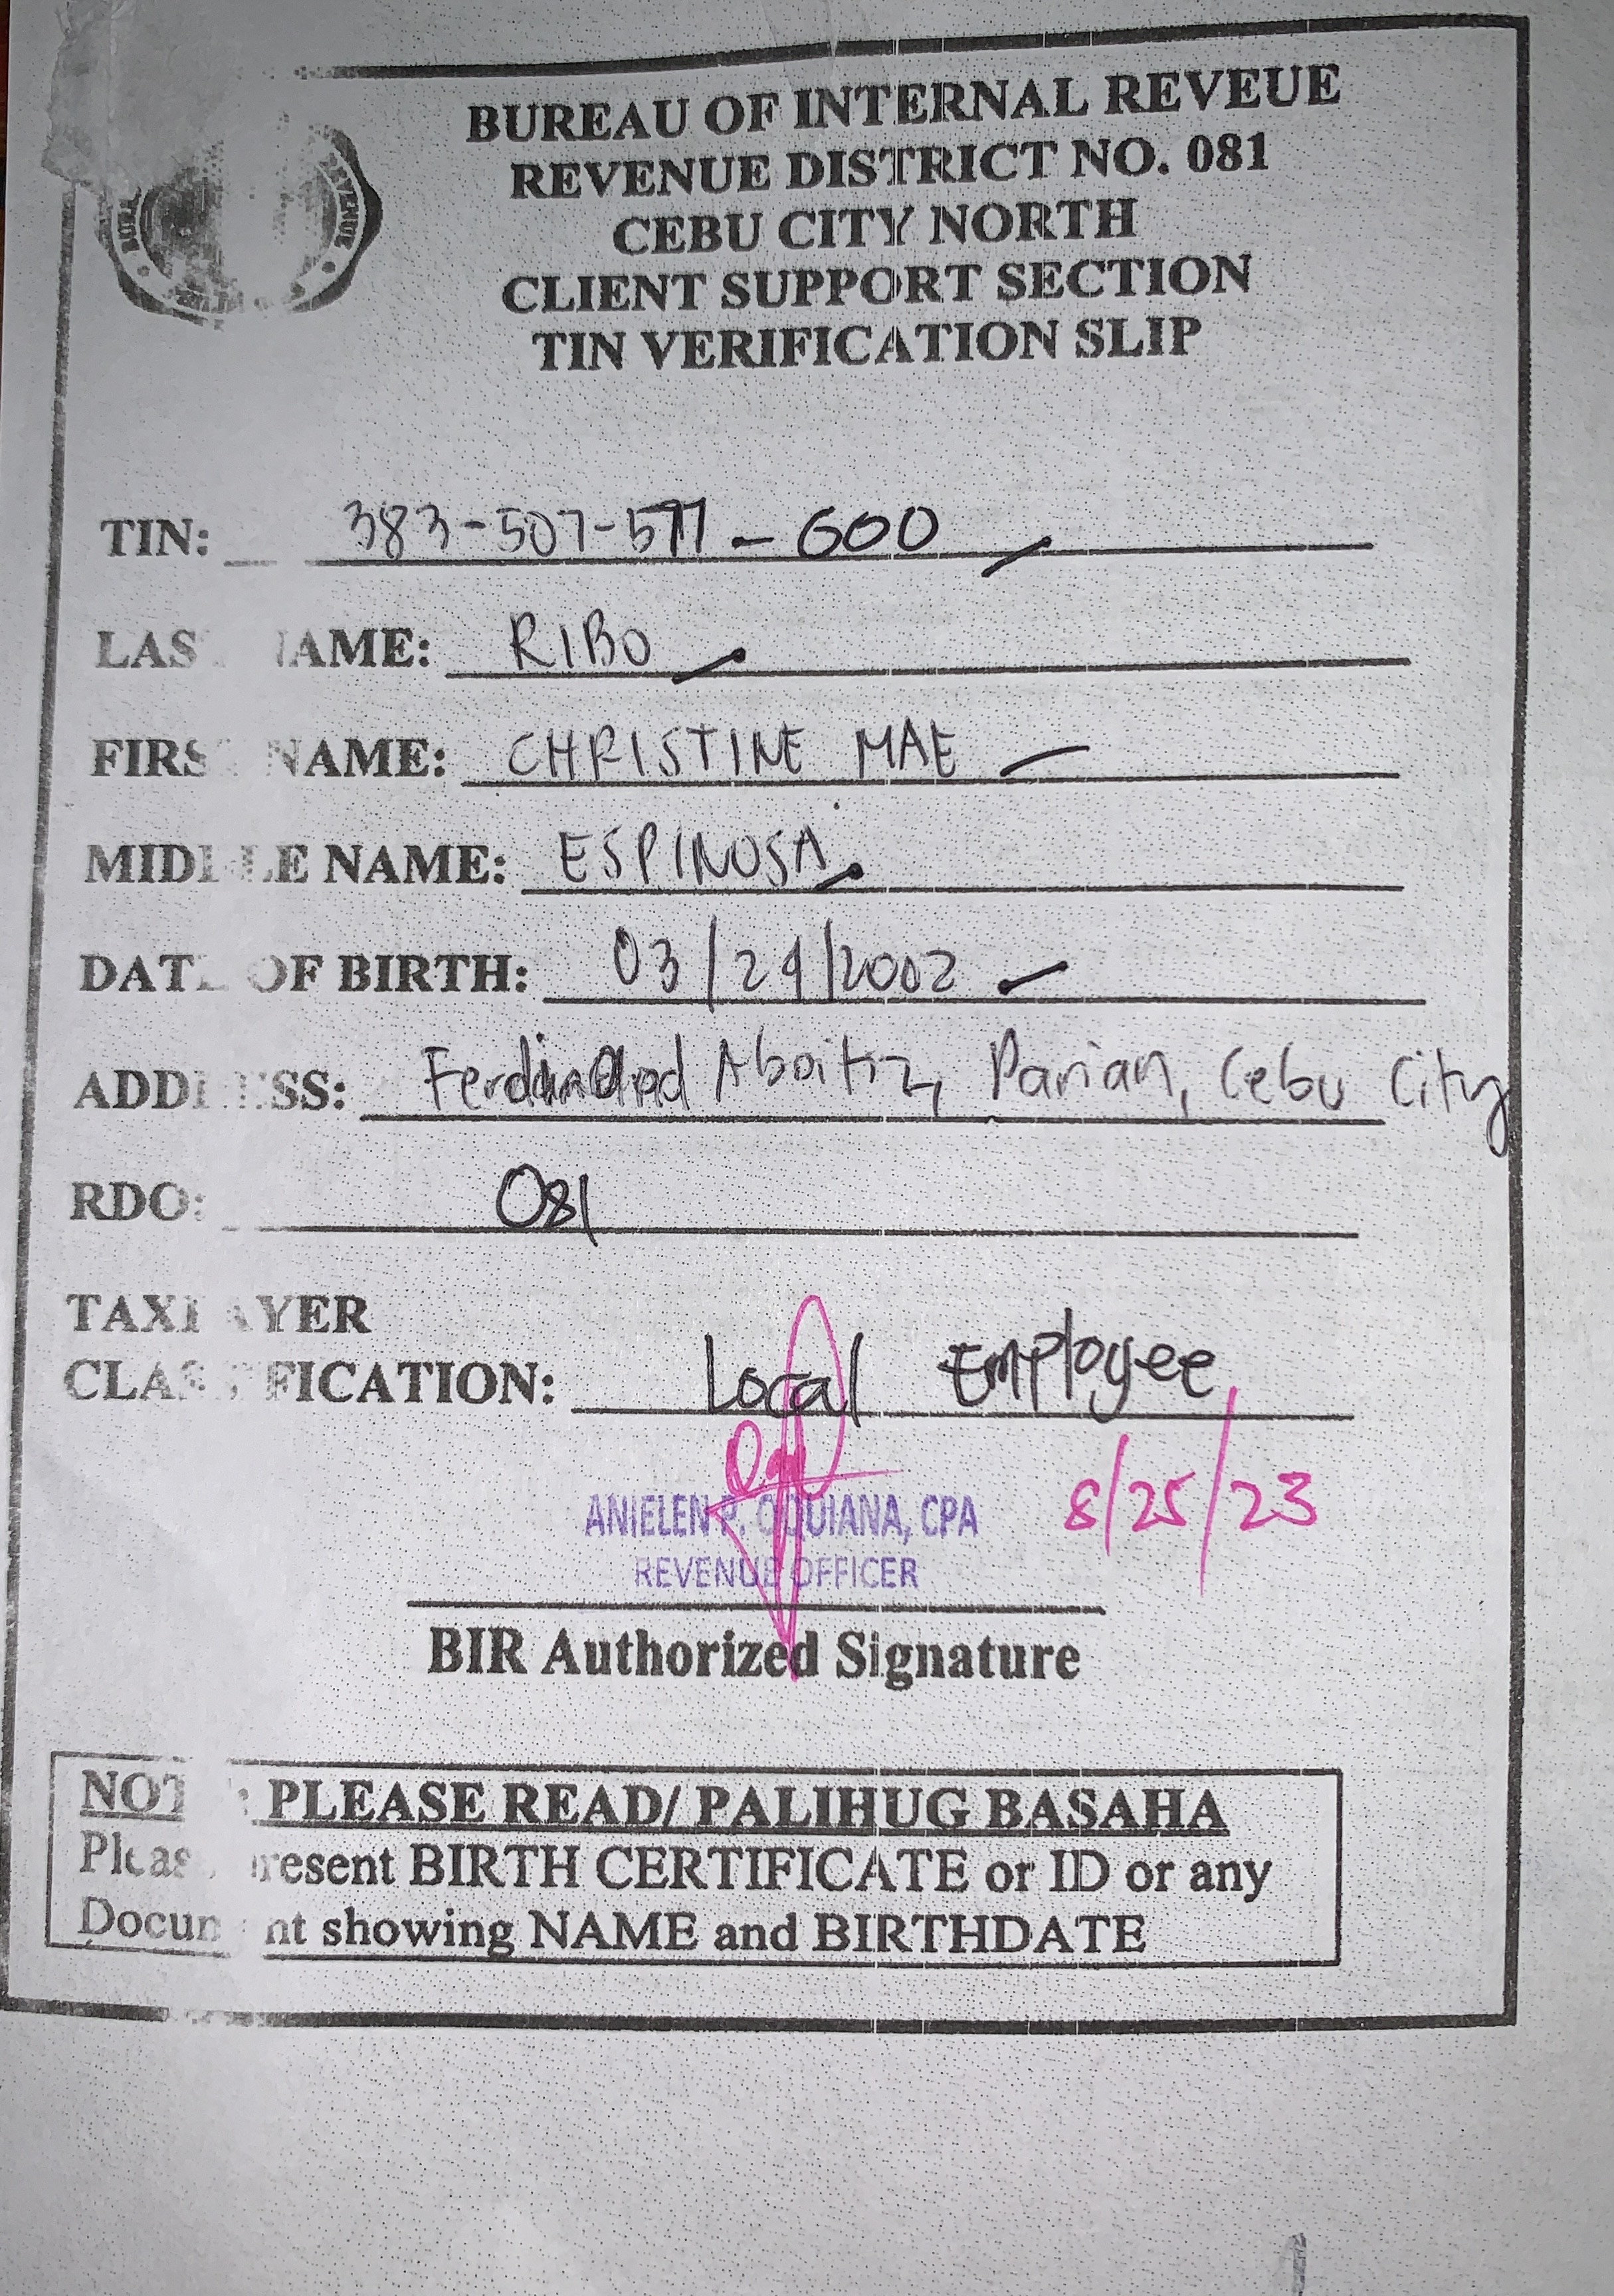 BUREAU OF INTERNAL REVEUE
REVENUE DISTRICT NO. 081
CEBU CITY NORTH
CLIENT SUPPORT SECTION
TIN VERIFICATION SLIP
TIN: 383-507-577-000
LAST NAME: RIBO
FIRST NAME: CHRISTINE MAE
MIDDLE NAME: ESPINOSA
DATE OF BIRTH: 03/29/2002
ADDRESS: Ferdinand Aboitiz, Parian, Cebu City
RDO: 081
TAXPAYER
CLASSIFICATION: Local Employee
ANIELEN P. UIANA, CPA 8/25/23
REVENUE OFFICER
BIR Authorized Signature
NOTE: PLEASE READ/ PALIHUG BASAHA
Please present BIRTH CERTIFICATE or ID or any
Document showing NAME and BIRTHDATE